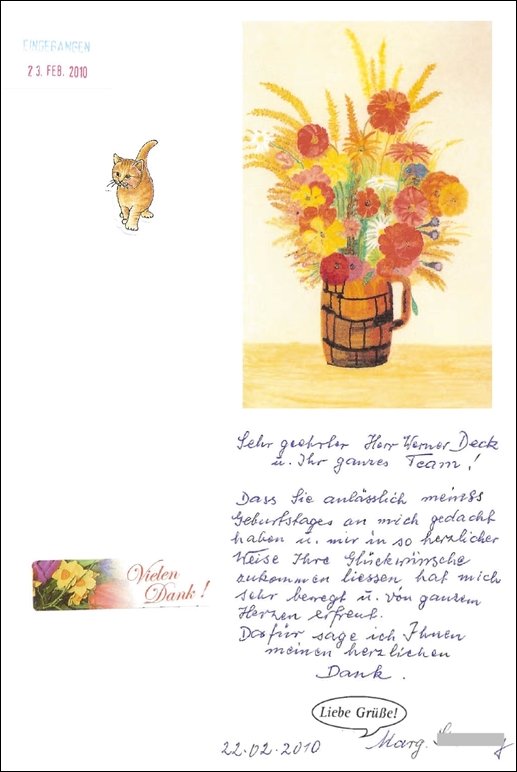 EINGEGANGEN
23. FEB. 2010
Sehr geehrter Herr Werner Deck
u. Ihr ganzes Team!
Dass Sie anlässlich meines
Geburtstages an mich gedacht
haben u. mir in so herzlicher
Weise Ihre Glückwünsche
zukommen liessen, hat mich
sehr bewegt u. von ganzem
Herzen erfreut.
Dafür sage ich Ihnen
meinen herzlichen
Dank.
Vielen
Dank!
Liebe Grüße!
22.02.2010 Marg.